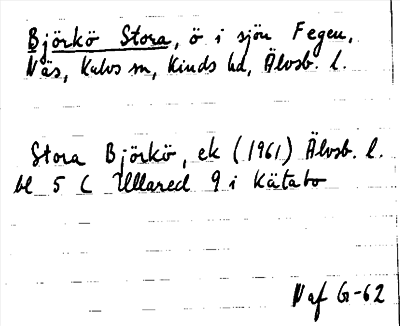 Björkö Stora, ö i sjön Fegen,
Näs, Kalvs sn, Kinds hd, Älvsb. l.
Stora Björkö, ek (1961) Älvsb. l.
bl 5 C Ullared 9 i Kätabo
Naf G-62